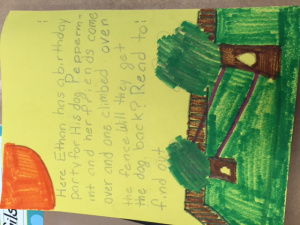 Here Ethan has a birthday
party for His dog Pepperm-
int and her friends come
over and one climbed over
the fence will they get
the dog back? Read to
find out